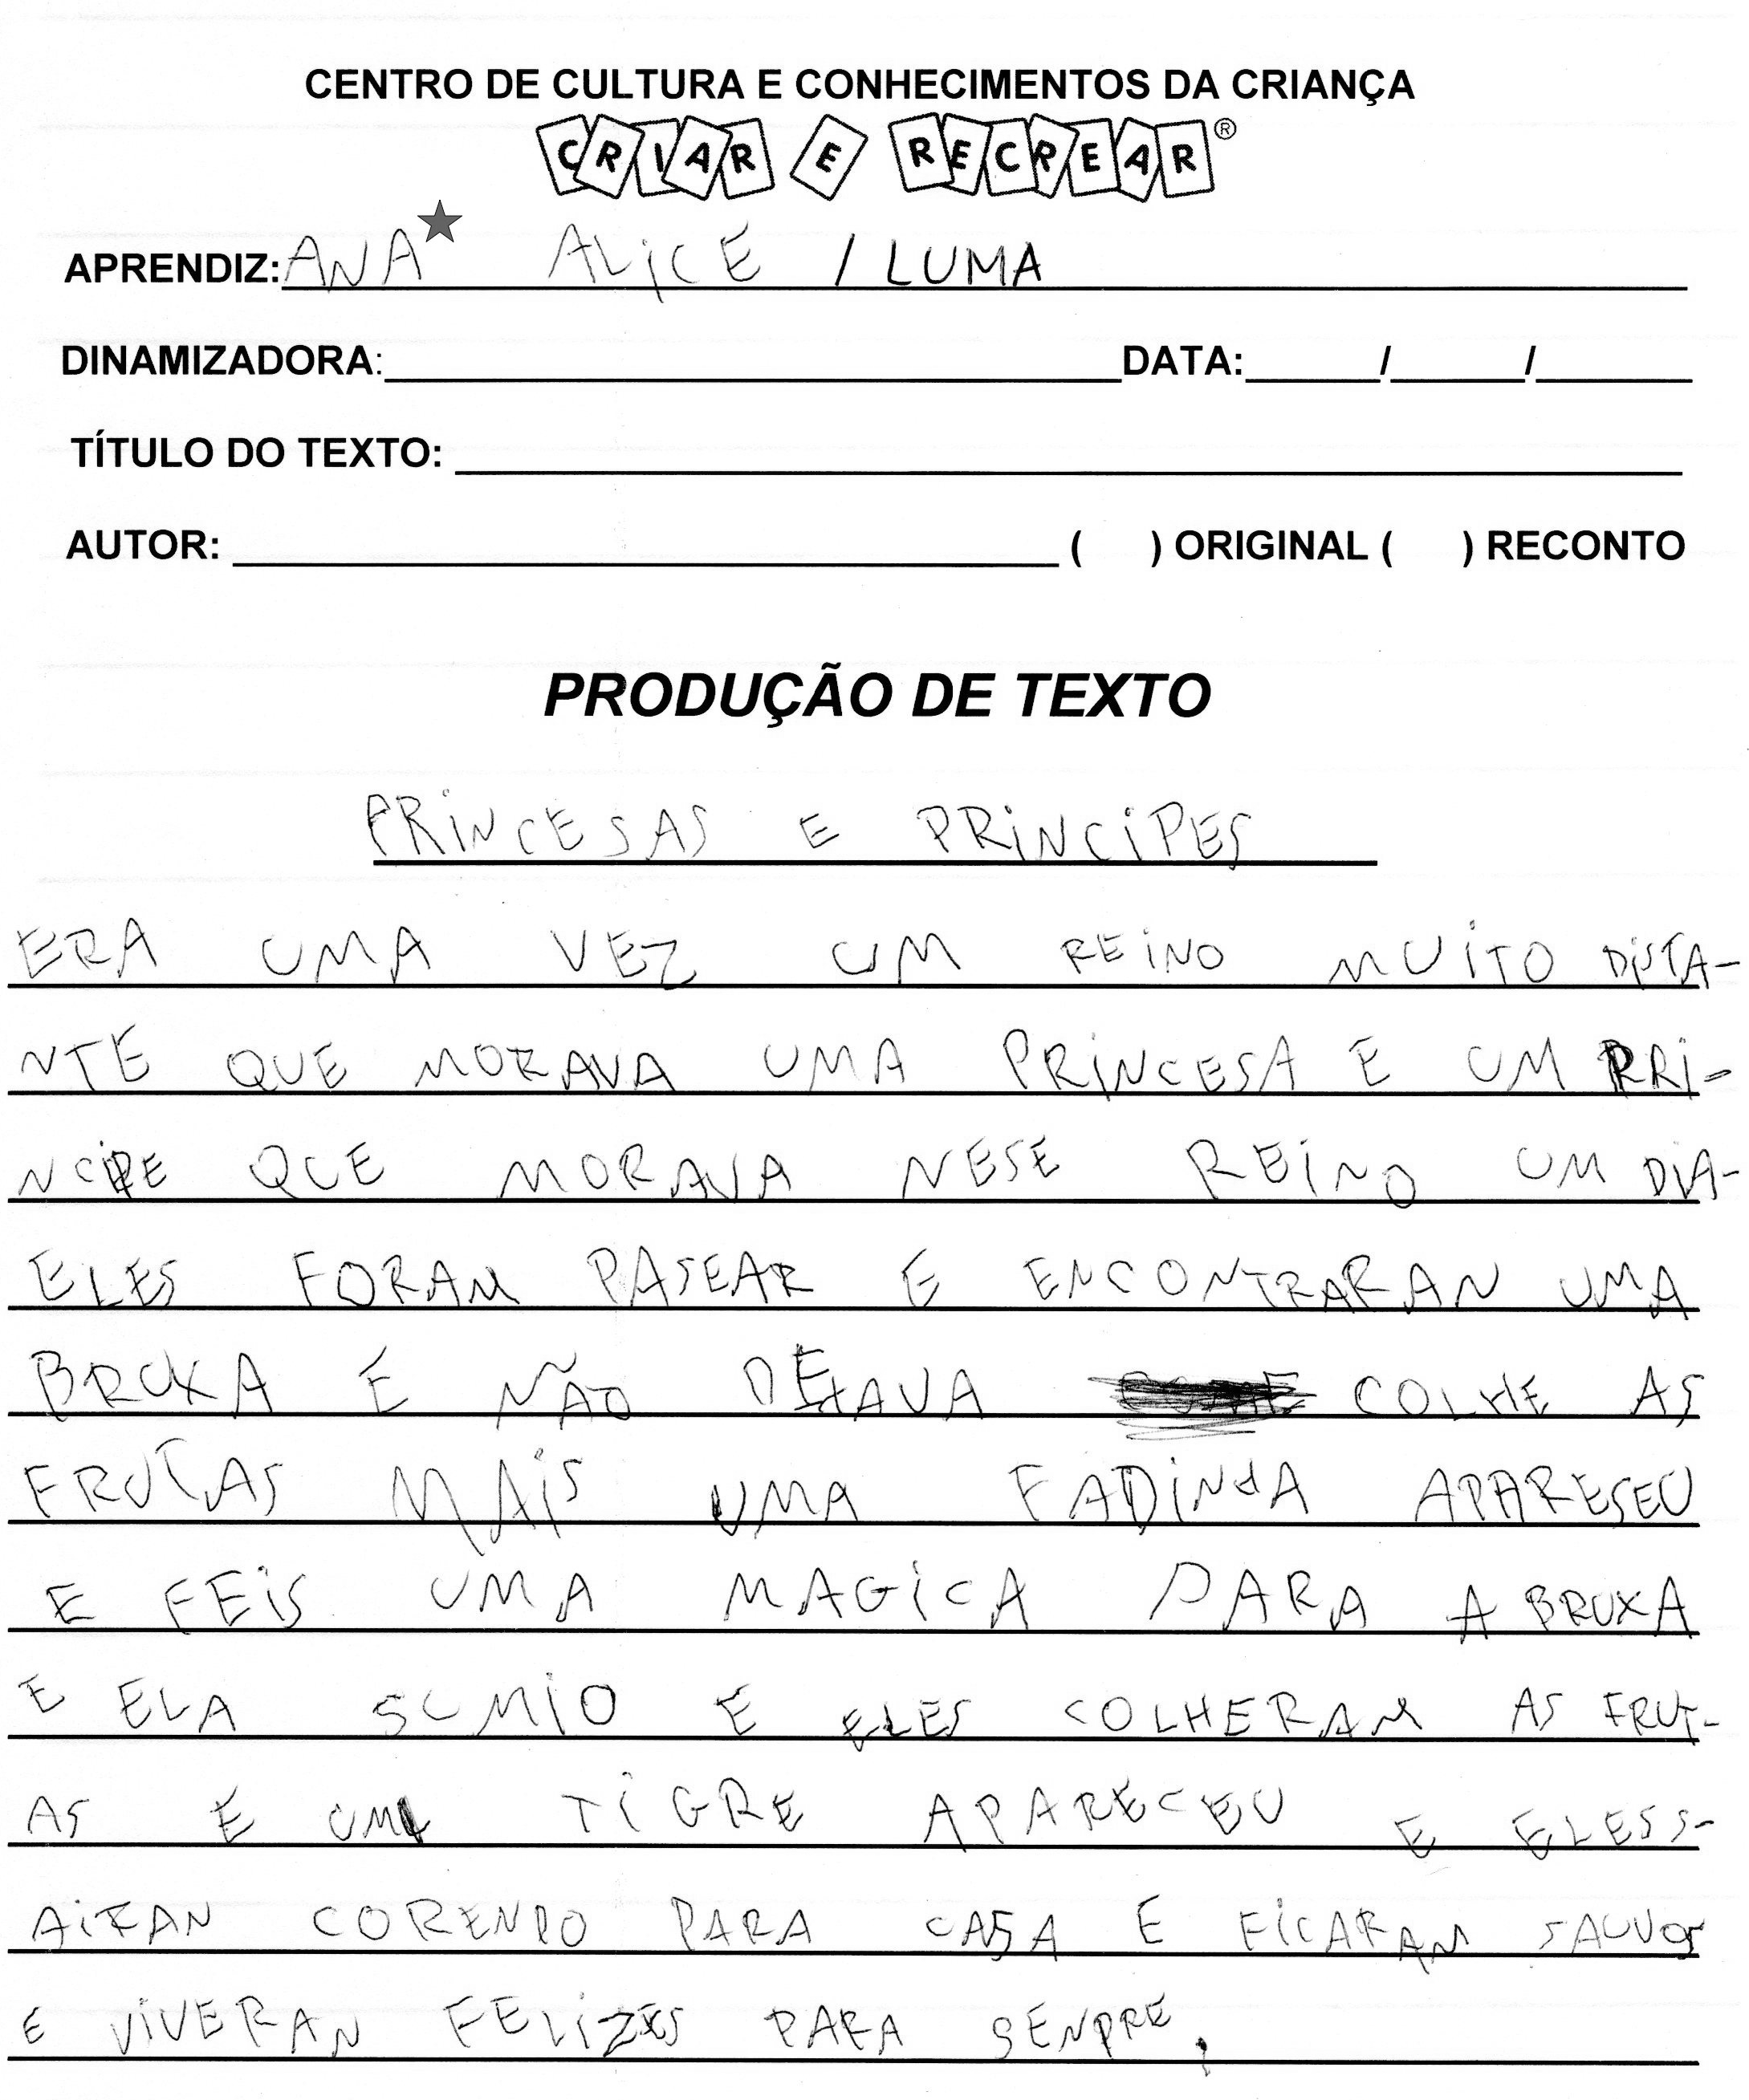 CENTRO DE CULTURA E CONHECIMENTOS DA CRIANÇA
CRIAR E RECREAR®
APRENDIZ: ANA ALICE / LUMA
DINAMIZADORA:____________________DATA:______/______/______
TÍTULO DO TEXTO: ____________________
AUTOR: ____________________ (   ) ORIGINAL (   ) RECONTO
PRODUÇÃO DE TEXTO
PRINCESAS E PRINCIPES
ERA UMA VEZ UM REINO MUITO DISTA-
NTE QUE MORAVA UMA PRINCESA E UM PRI-
NCIPE QUE MORAVA NESE REINO UM DIA-
ELES FORAM PASEAR E ENCONTRARAN UMA
BRUXA E NÃO DEXAVA COLHE AS
FRUTAS MAIS UMA FADINHA APARESEU
E FEIS UMA MAGICA PARA A BRUXA
E ELA SUMIO E ELES COLHERAM AS FRUT-
AS E UM TIGRE APARECEU E ELESS-
AIRAN CORENDO PARA CASA E FICARAM SAUVOS
E VIVERAN FELIZES PARA SENPRE.